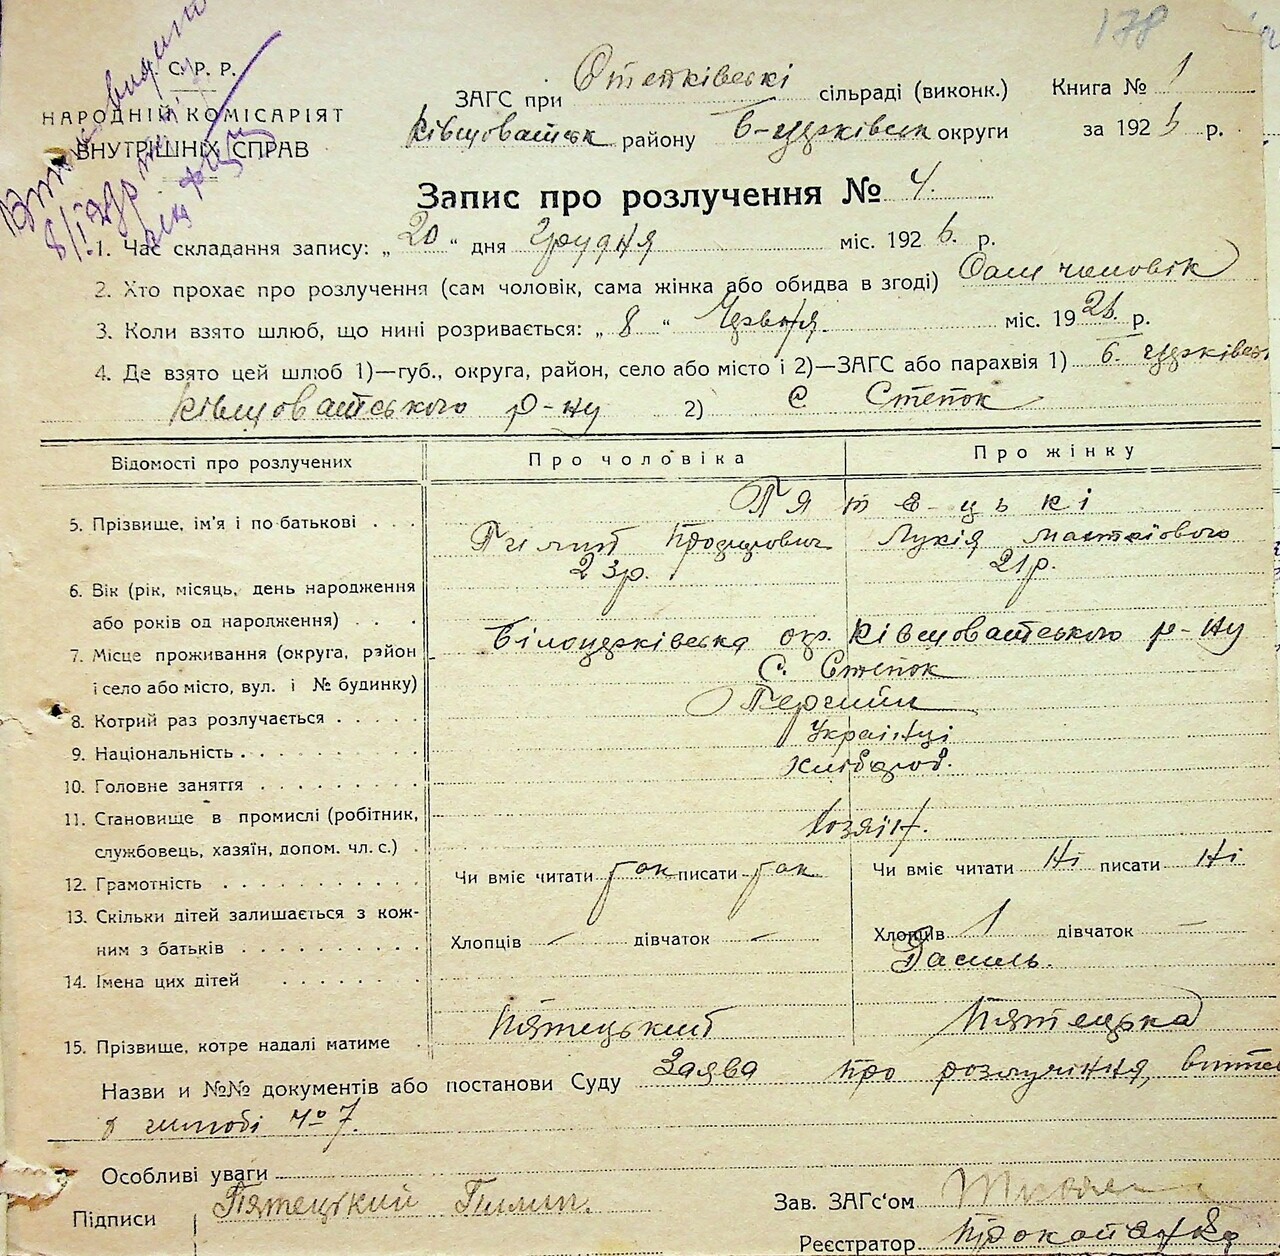 178
С. Р. Р.
НАРОДНІЙ КОМІСАРІЯТ
ВНУТРІШНІХ СПРАВ
ЗАГС при сільраді (виконк.) Книга № 1
Ківшоватськ району Б-Церківськ округи за 1926 р.
Запис про розлучення № 4.
1. Час складання запису: „20“ дня Грудня міс. 1926. р.
2. Хто прохає про розлучення (сам чоловік, сама жінка або обидва в згоді) Сам чоловік
3. Коли взято шлюб, що нині розривається: „8“ Червня. міс. 1926. р.
4. Де взято цей шлюб 1)—губ., округа, район, село або місто і 2)—ЗАГС або парахвія 1) Б. Церківськ
Ківшоватського р-ну 2) С. Степок
Відомості про розлучених Про чоловіка Про жінку
5. Прізвище, ім'я і по батькові . . . Пятецькі
Пилип Лукія
23р. 21р.
6. Вік (рік, місяць, день народження
або років од народження) . . .
Білоцерківська окр. Ківшоватського р-ну
7. Місце проживання (округа, район
і село або місто, вул. і № будинку)
С. Степок
8. Котрий раз розлучається . . . . . Перший
9. Національність . . . . . . . . Українці
10. Головне заняття . . . . . . . . Хлібороб.
11. Становище в промислі (робітник,
службовець, хазяїн, допом. чл. с.) . Хозяїн.
12. Грамотність . . . . . . . . . . Чи вміє читати так писати так Чи вміє читати Ні писати Ні
13. Скільки дітей залишається з кож-
ним з батьків . . . . . . . . . . Хлопців – дівчаток – Хлопців 1 дівчаток –
14. Імена цих дітей . . . . . . . Василь.
15. Прізвище, котре надалі матиме . Пятецький Пятецька
Назви и №№ документів або постанови Суду Заява про розлучіння,
о шлюбі № 7.
Особливі уваги
Підписи Пятецький Пилип. Зав. ЗАГс'ом
Реєстратор